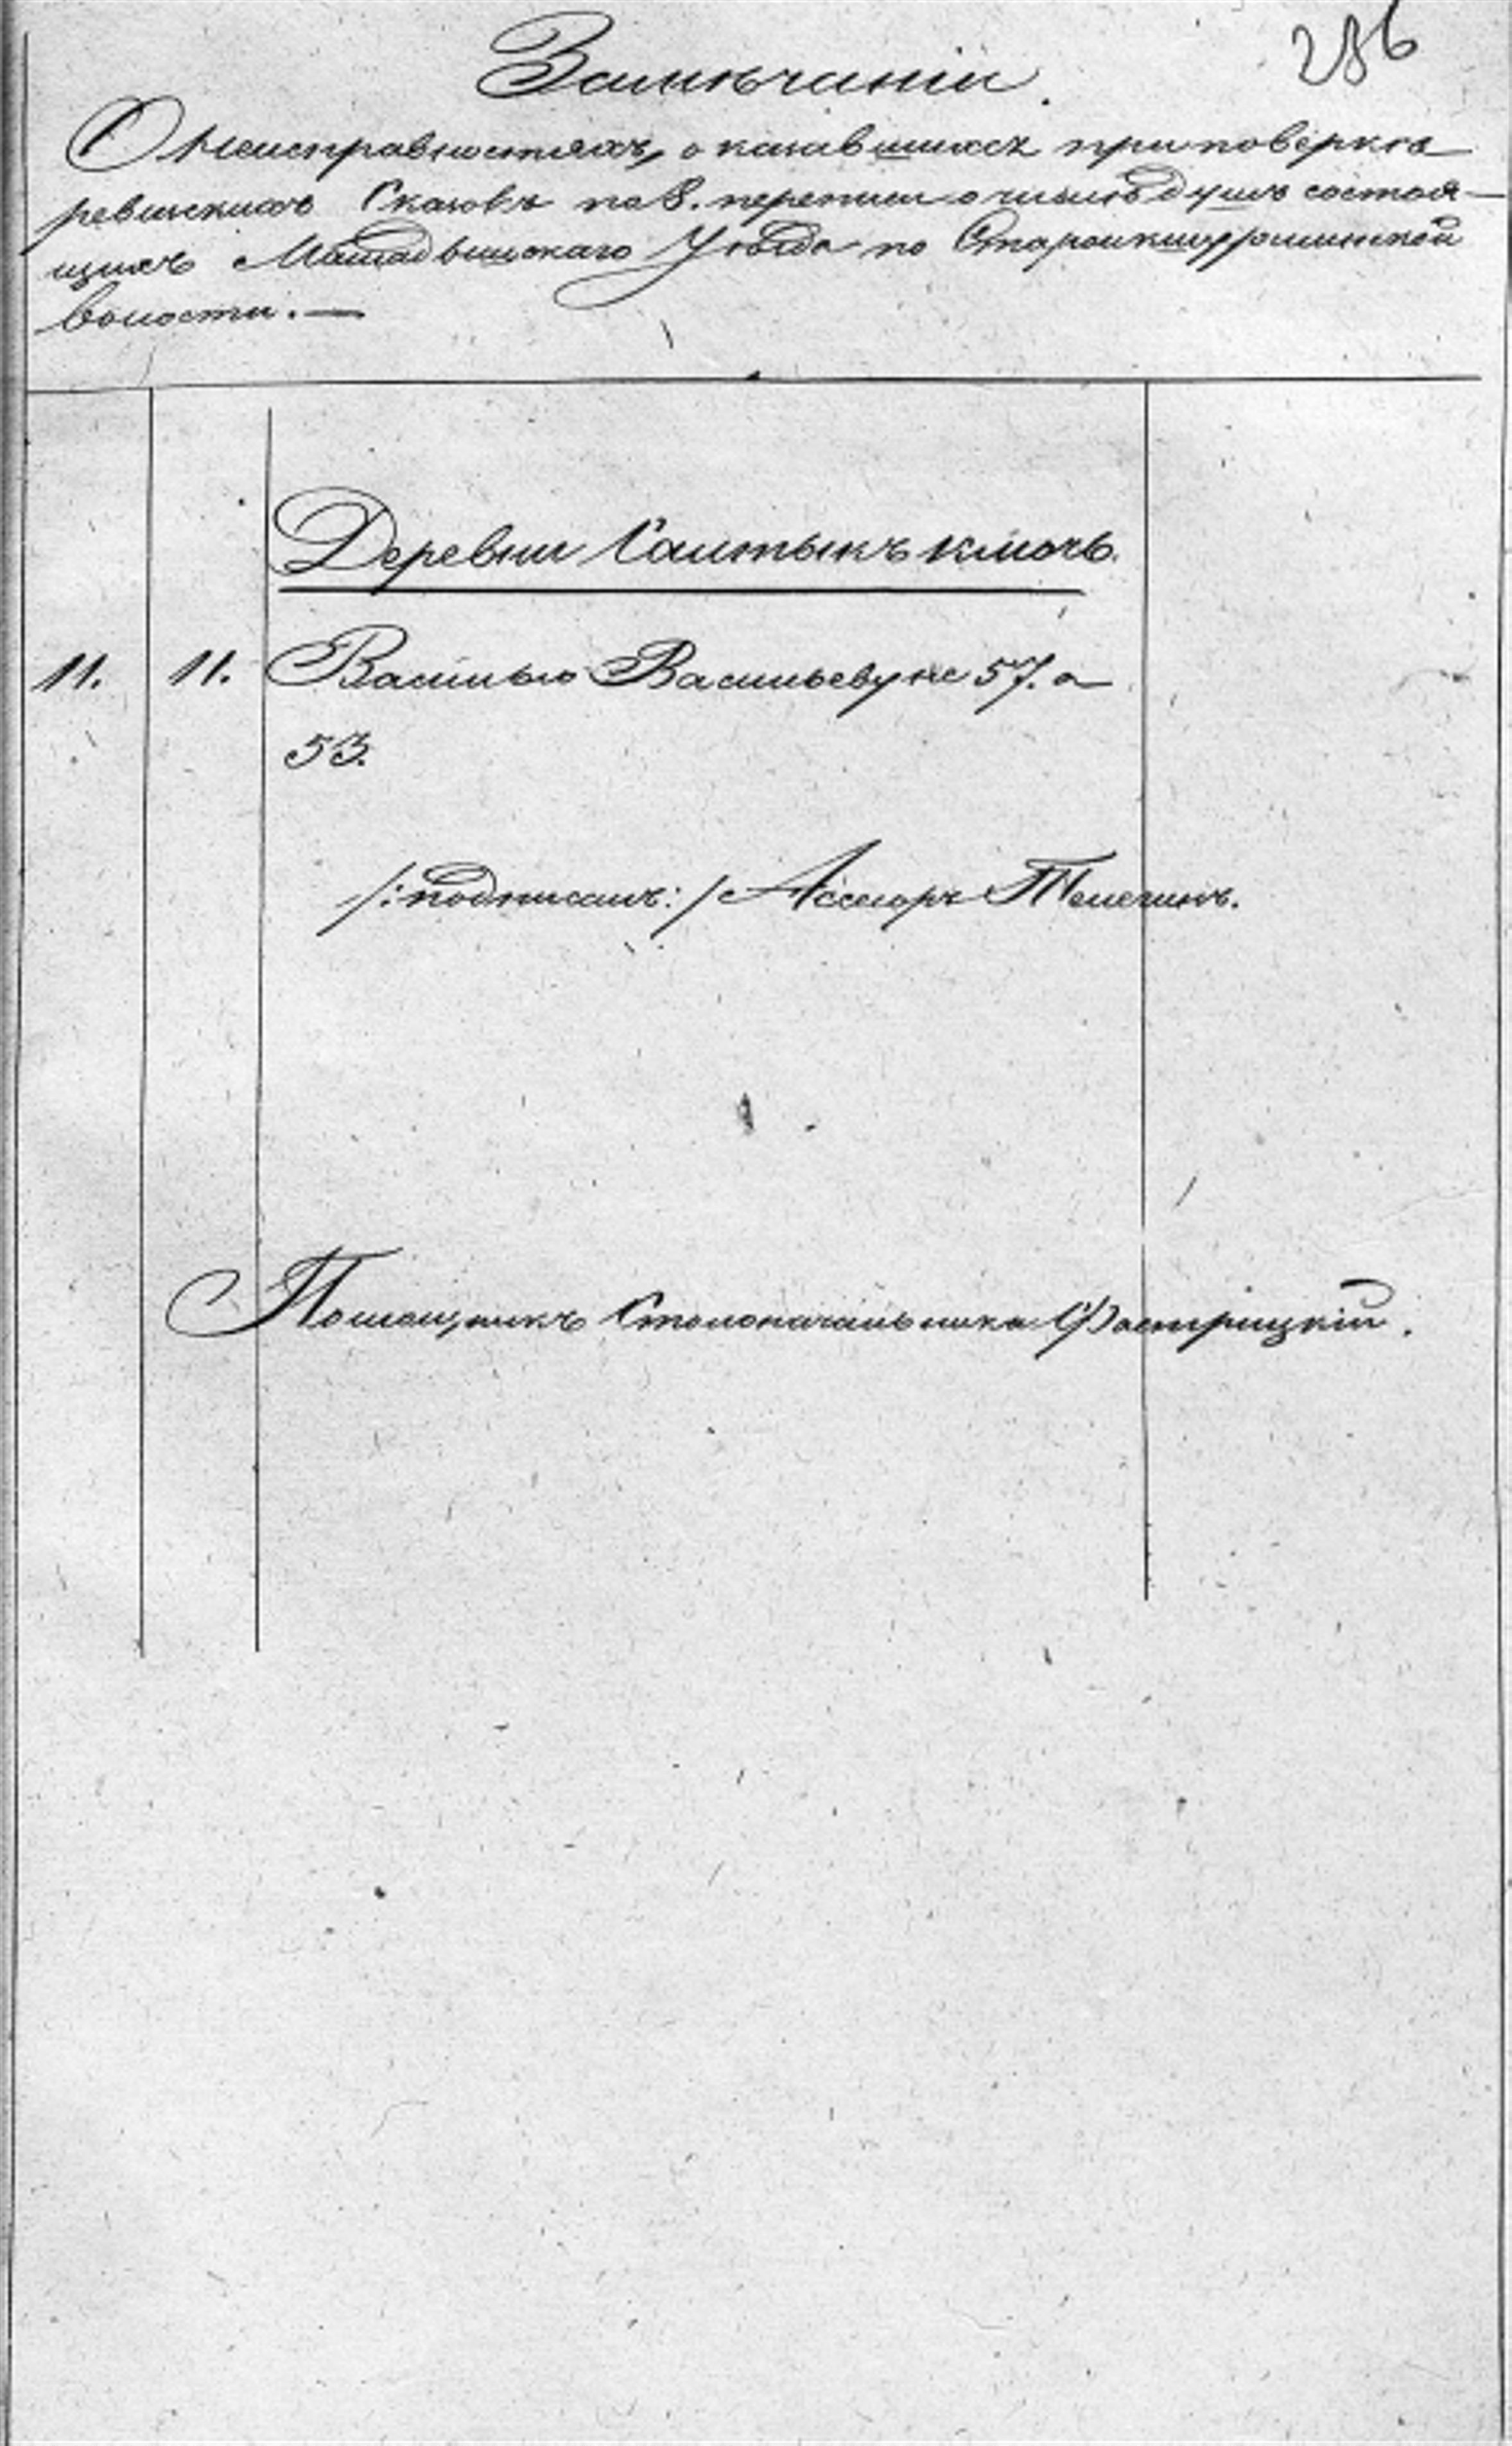 286
Замѣчаніи.
О Неисправностяхъ, оказавшихся при повѣркѣ
ревизскихъ Сказокъ по 8. переписи о числѣ душъ состоя-
щихъ Малмыжскаго Уѣзда по Старо
волости. —
Деревни Салтыкъ ключь.
11. 11. Василью Васильеву не 57. а
53.
/:подписалъ:/ Ассесоръ Телегинъ.
Помощникъ Столоначальника